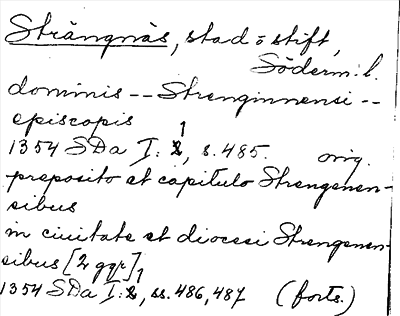 Strängnäs, stad o stift,
Söderm: l.
dominis -- Strenginensi --
episcopis
1354 SDa I: 1, s. 485. orig.
preposito et capitulo Strengenen-
sibus
in ciuitate et diocesi Strengenen-
sibus [2 ggr]
1354 SDa I: 1, ss. 486, 487 (forts.)